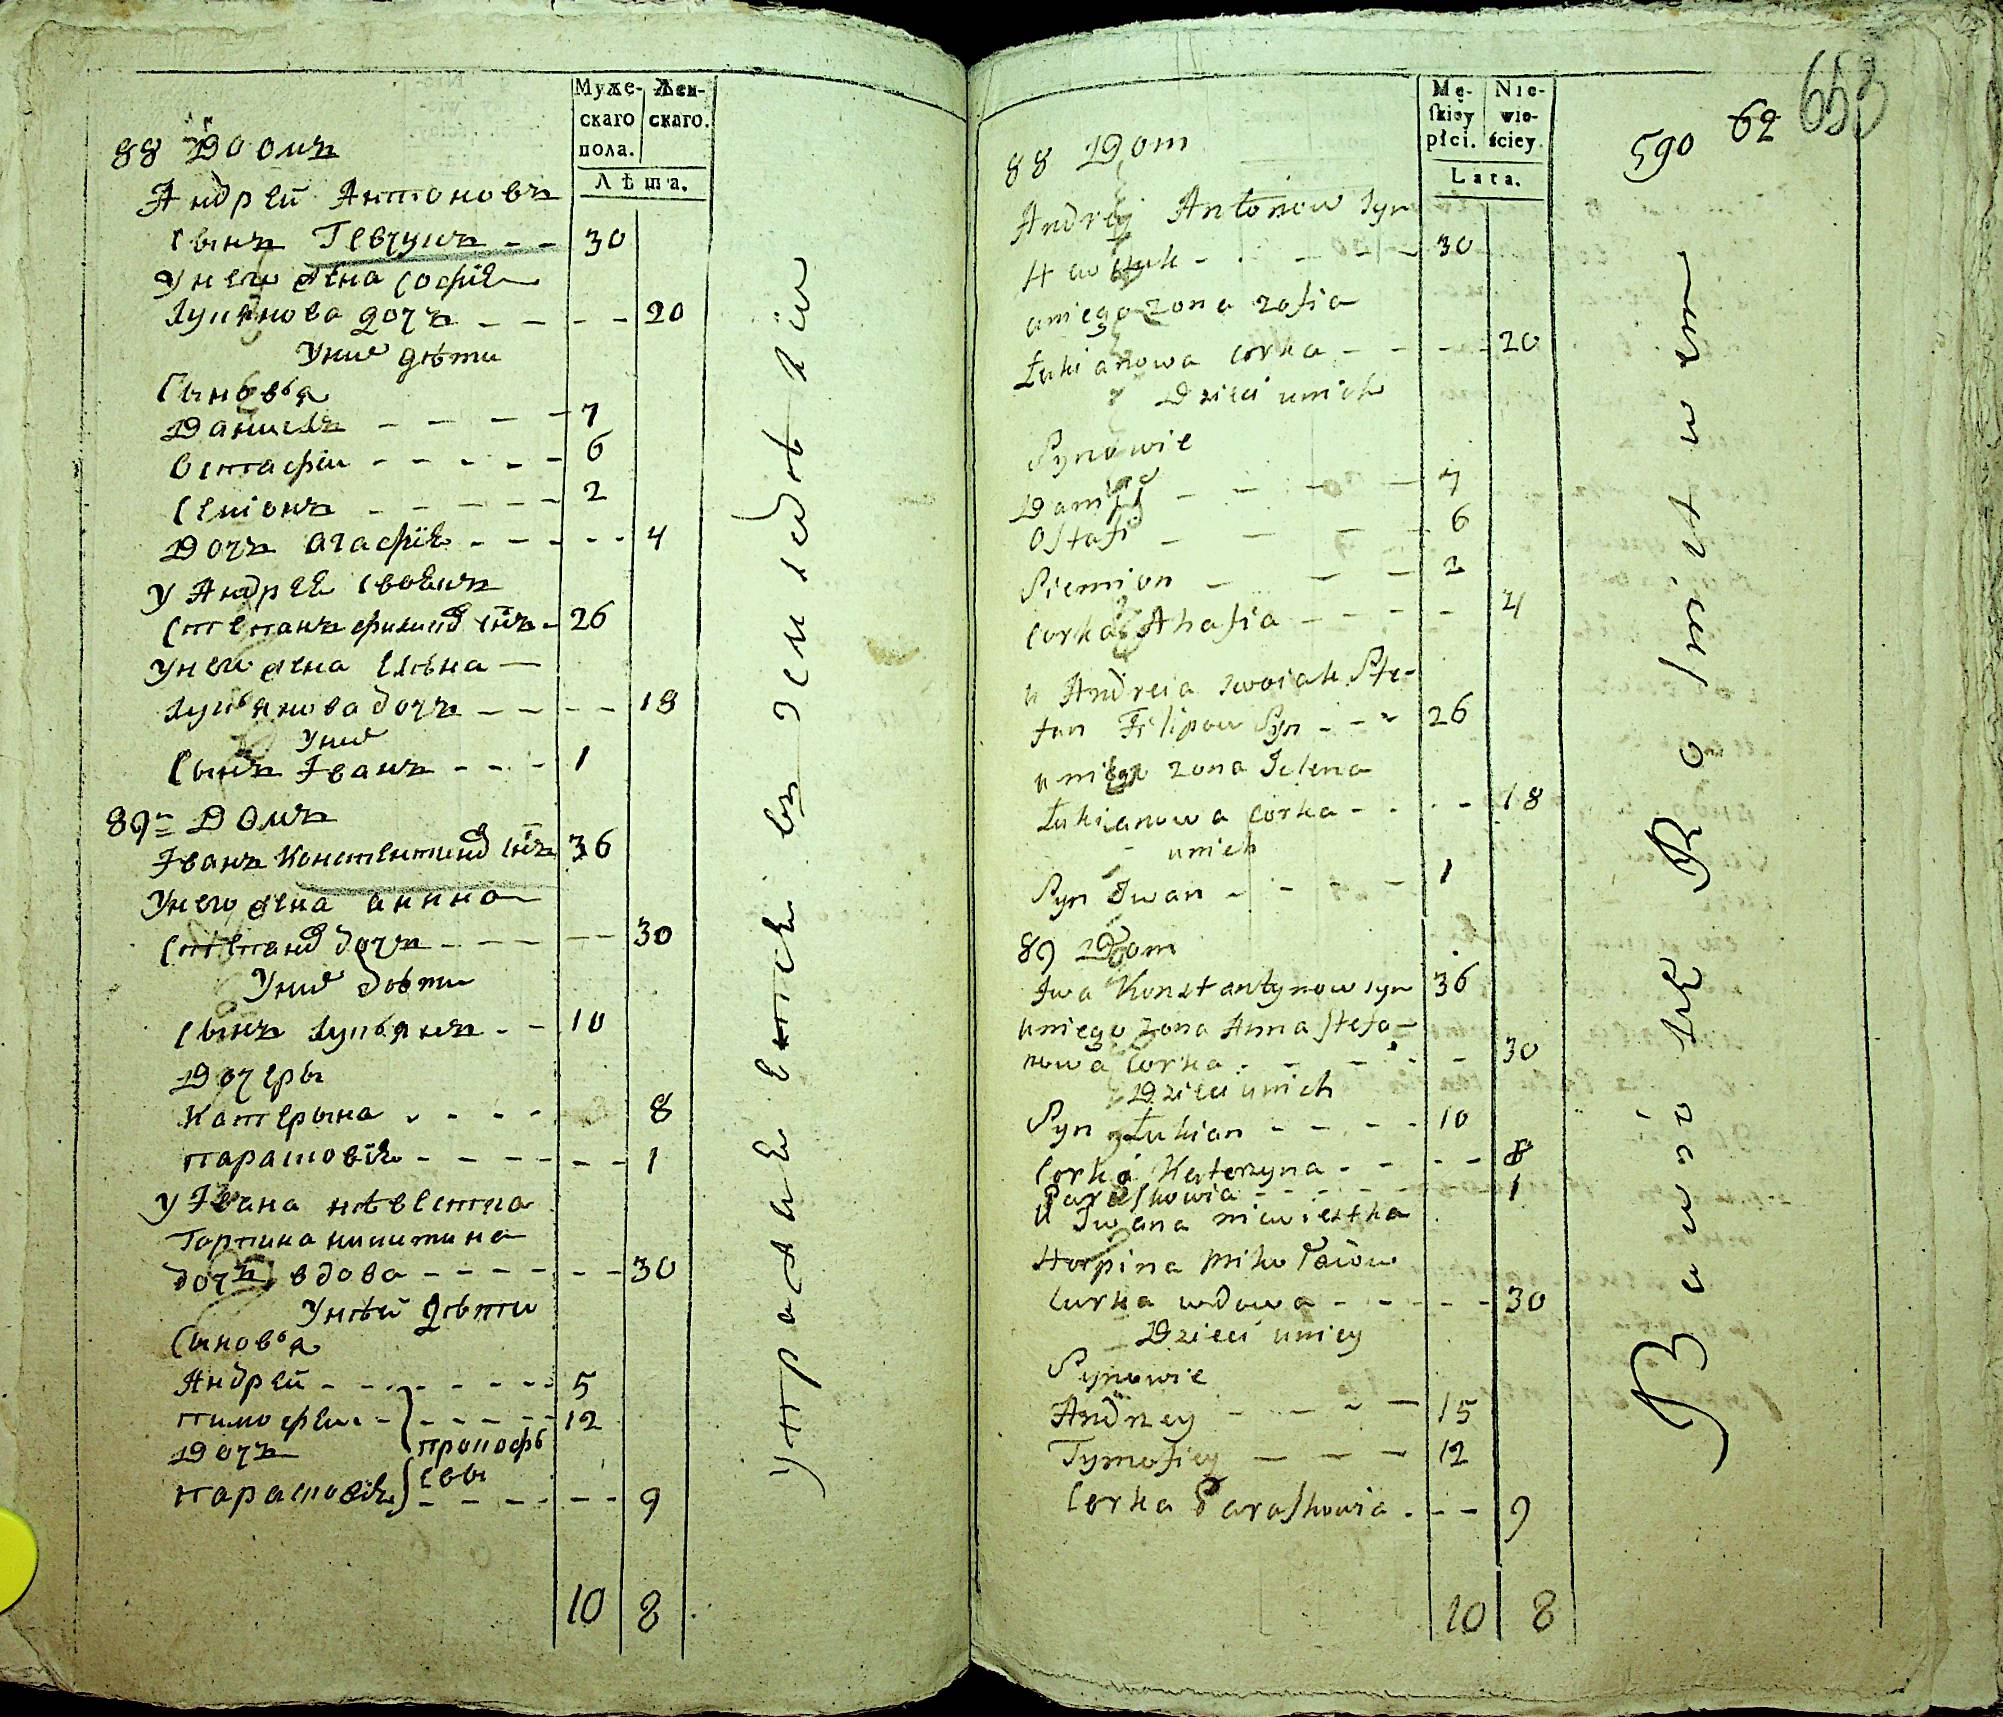 Муже-
скаго
пола.
Жен-
скаго.
Лѣта.
88 Домъ
Андрей Антоновъ
Сынъ Гевчукъ - - 30
У него жена Софiя
Лукянова дочъ - - - - 20
У них дѣти
Сыновья
Данило - - - - 7
Остафiи - - - - - 6
Семiонъ - - - - - 2
Дочъ Агафiя - - - - - 4
у Андрея своякъ
Степанъ филипов снъ - 26
У него жена Елѣна -
Лукьянова дочъ - - - - 18
У них
Сынъ Iванъ - - - 1
89 Домъ
Iванъ Константинов снъ 36
У него жена Анна
Степанов дочъ - - - - - 30
У них дѣти
Сынъ Лукьянъ - - 10
Дочеры
Катерына - - - - 8
Парасковiя - - - - - - 1
у Iвана невестка
Горпина никитина
дочъ вдова - - - - - - 30
У ней дѣти
Сыновья
Андрей - - - - - - - 5
Тимофеи - - - - - - 12
Дочъ
Прокофь
евы
Парасковiя - - - - - - 9
10 8
Mę-
skiey
płci.
Nie-
wie-
ściey.
Lata.
590 62 653
88 Dom
Andrej Antonow Syn
- - - - 30
u niego zona Zofia
Łukianowa corka - - - - 20
Dzieci unich
Synowie
Daniło - - - - 7
Ostafi - - - 6
Siemion - - - 2
Corka Ahafia - - - - 4
u Andreia swoiak Ste-
fan Filipow Syn - - - 26
u niego zona Jelena
Łukianowa corka - - - - 18
unich
Syn Iwan - - - - 1
89 Dom
Iwa Konstantynow syn 36
uniego zona Anna Stefa-
nowa Corka - - - - - 30
Dzieci unich
Syn Łukian - - - - 10
Corka Katerzyna - - - - 8
Paraskowia - - - - - 1
u Iwana niewiestka
Horpina Mikołaiow
Curka wdowa - - - - 30
Dzieci uniey
Synowie
Andrzey - - - - 15
Tymofiey - - - 12
Corka Paraskowia - - - 9
10 8